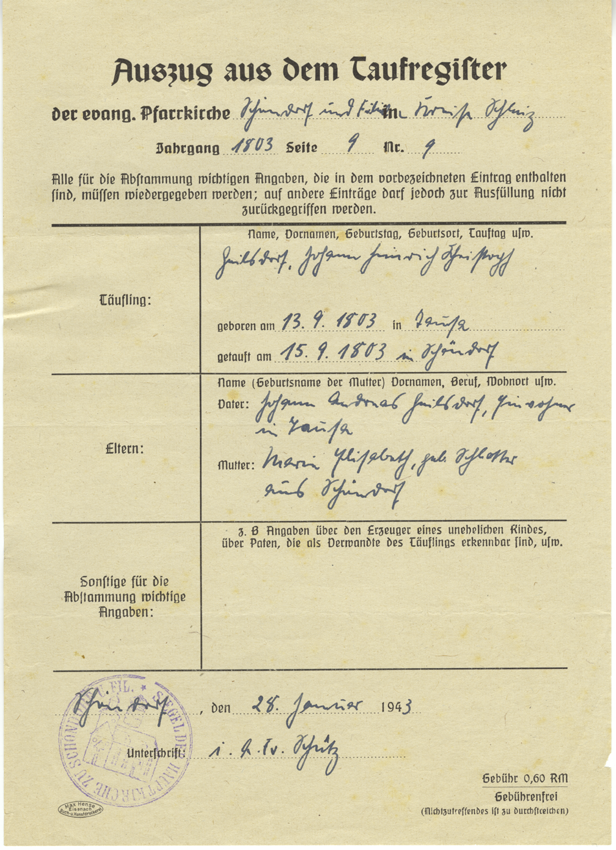 Auszug aus dem Taufregister
der evang. Pfarrkirche Schöndorf und Filial im Kreise Schleiz
Jahrgang 1803 Seite 9 Nr. 9
Alle für die Abstammung wichtigen Angaben, die in dem vorbezeichneten Eintrag enthalten
sind, müssen wiedergegeben werden; auf andere Einträge darf jedoch zur Ausfüllung nicht
zurückgegriffen werden.
Name, Vornamen, Geburtstag, Geburtsort, Tauftag usw.
Heilsdorf, Johann Heinrich Christoph
Täufling:
geboren am 13. 9. 1803 in Tausa
getauft am 15. 9. 1803 in Schöndorf
Name (Geburtsname der Mutter) Vornamen, Beruf, Wohnort usw.
Vater: Johann Andreas Heilsdorf, Einwohner
in Tausa
Eltern:
Mutter: Marie Elisabeth, geb. Schlotter
aus Schöndorf
z. B Angaben über den Erzeuger eines unehelichen Kindes,
über Paten, die als Verwandte des Täuflings erkennbar sind, usw.
Sonstige für die
Abstammung wichtige
Angaben:
Schöndorf, den 28. Januar 1943
Unterschrift: i. A. Fr. Schütz
SIEGEL DER HAUPTKIRCHE ZU SCHÖNDORF FIL.
Gebühr 0,60 RM
Gebührenfrei
(Nichtzutreffendes ist zu durchstreichen)
Max Hense
Eisenach